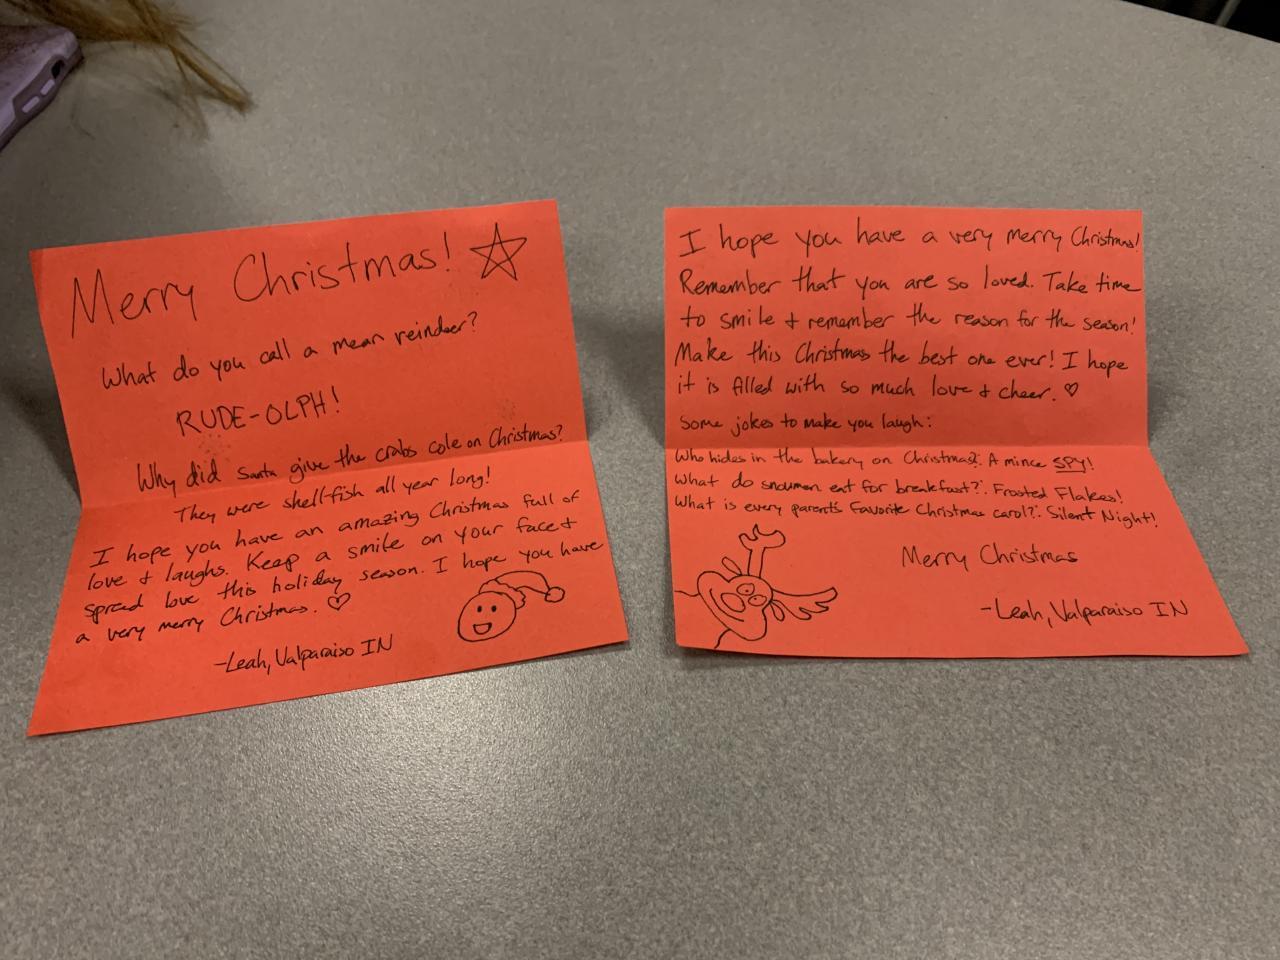 Merry Christmas!
What do you call a mean reindeer?
RUDE-OLPH!
Why did Santa give the crabs cole on Christmas?
They were shellfish all year long!
I hope you have an amazing Christmas full of
love + laughs. Keep a smile on your face +
spread love this holiday season. I hope you have
a very merry Christmas. ♡
-Leah, Valparaiso IN
I hope you have a very merry Christmas!
Remember that you are so loved. Take time
to smile + remember the reason for the season!
Make this Christmas the best one ever! I hope
it is filled with so much love + cheer. ♡
Some jokes to make you laugh:
Who hides in the bakery on Christmas?: A mince SPY!
What do snowmen eat for breakfast?: Frosted Flakes!
What is every parent's favorite Christmas carol?: Silent Night!
Merry Christmas
-Leah, Valparaiso IN